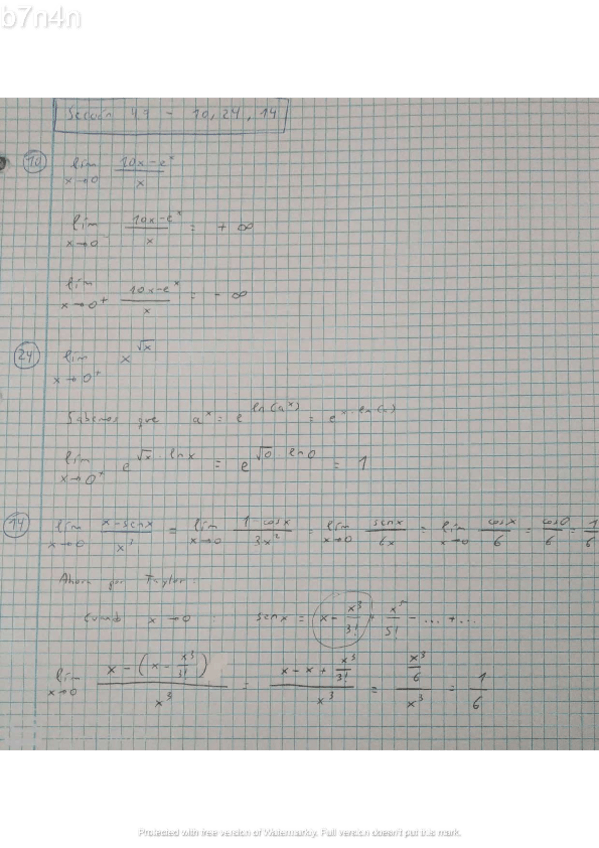 b7n4n
Sección 4.7 - 10, 24, 14
10 lim x→0 (10x-e^x)/x
lim x→0⁻ (10x-e^x)/x = +∞
lim x→0⁺ (10x-e^x)/x = -∞
24 lim x→0⁺ x^√x
Sabemos que a^x = e^ln(a^x) = e^x·ln(a)
lim x→0⁺ e^√x·lnx = e^√0·ln0 = 1
14 lim x→0 (x-senx)/x³ = lim x→0 (1-cosx)/3x² = lim x→0 senx/6x = lim x→0 cosx/6 = cos0/6 = 1/6
Ahora por Taylor:
Cuando x→0 : senx = x - x³/3! + x⁵/5! - ... + ...
lim x→0 (x-(x-x³/3!))/x³ = (x-x+x³/3!)/x³ = (x³/6)/x³ = 1/6
Protected with free version of Watermarkly. Full version doesn't put this mark.